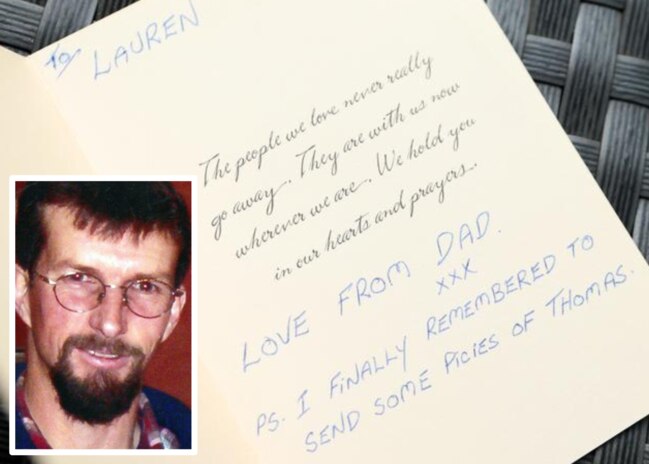 To LAUREN
The people we love never really
go away. They are with us now
wherever we are. We hold you
in our hearts and prayers.
LOVE FROM DAD.
xxx
PS. I FINALLY REMEMBERED TO
SEND SOME PICIES OF THOMAS.